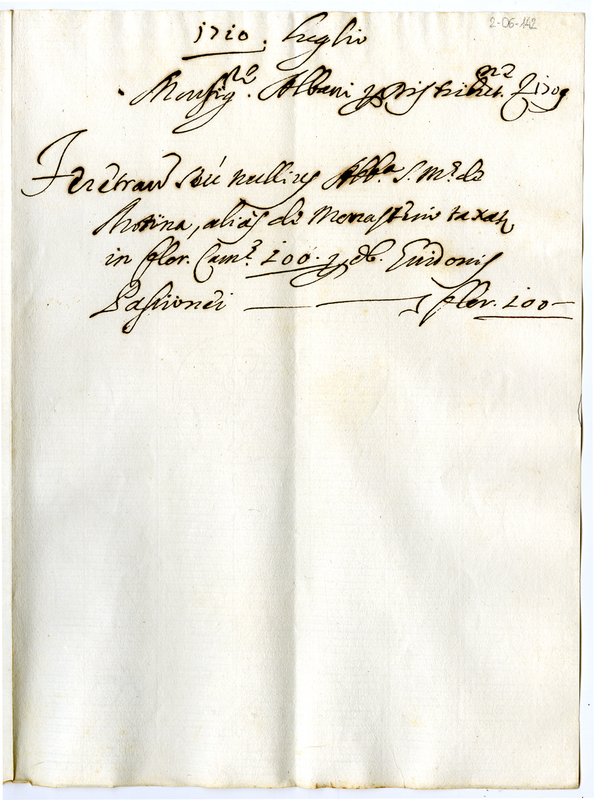 2-06-142
1710. Luglio
Monsig.re Albani p distribut.ne 1709
Feretran seu nullius Abb.a S. M.e de
Motina, alias de Monasterio taxat
in flor. Cam.e 200. p ob.
Passionei — flor. 200 —